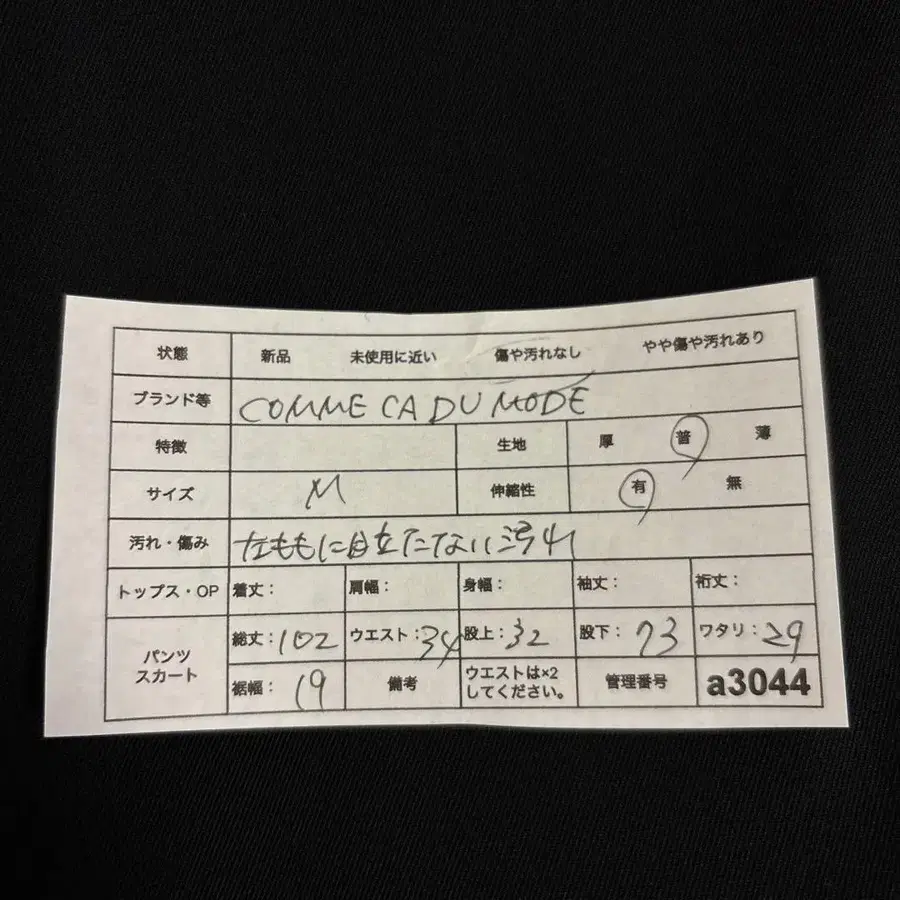 状態 新品 未使用に近い 傷や汚れなし やや傷や汚れあり
ブランド等 COMME CA DU MODE
特徴 生地 厚 普 薄
サイズ M 伸縮性 有 無
汚れ・傷み 左ももに目立たない汚れ
トップス・OP 着丈: 肩幅: 身幅: 袖丈: 裄丈:
パンツ スカート 総丈:102 ウエスト:34 股上:32 股下:73 ワタリ:29
裾幅:19 備考 ウエストは×2 してください。 管理番号 a3044